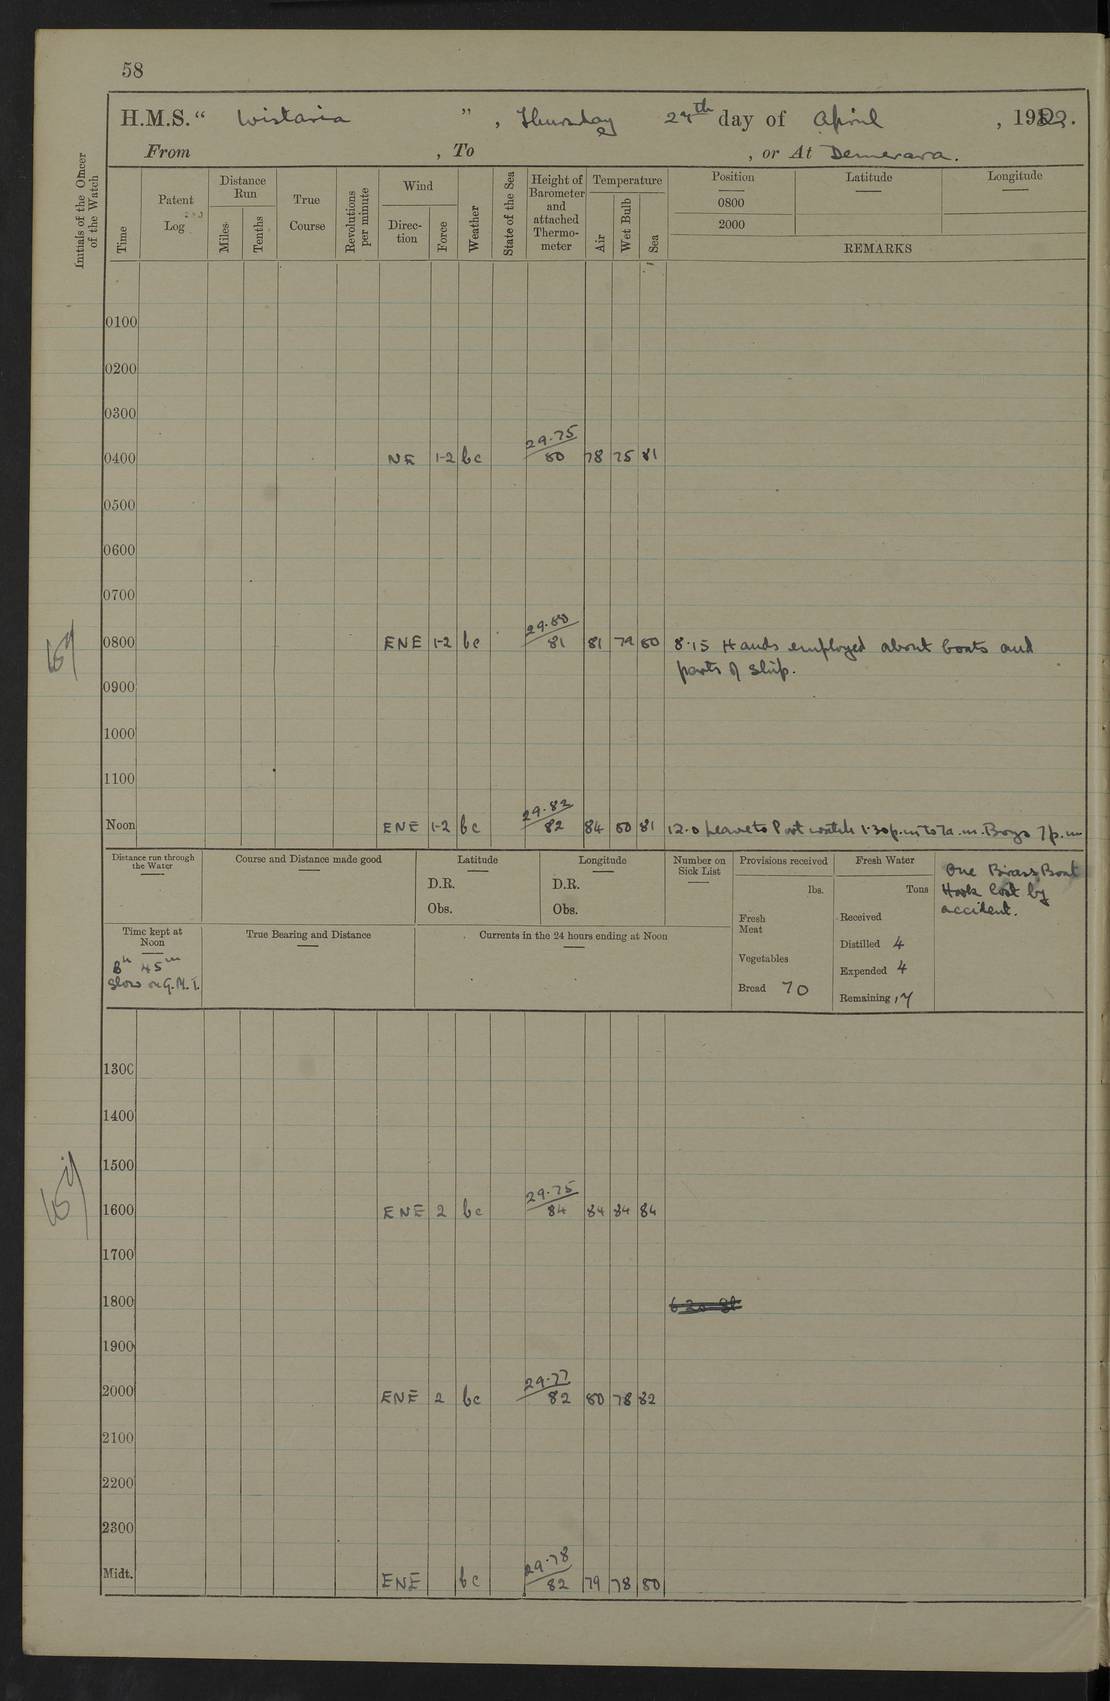 58
H.M.S. “ Wistaria ” , Thursday 27th day of April , 1922.
From , To , or At Demerara.
Initials of the Officer of the Watch
Time
Patent Log
Distance Run
Miles
Tenths
True Course
Revolutions per minute
Wind
Direc-tion
Force
Weather
State of the Sea
Height of Barometer and attached Thermo-meter
Temperature
Air
Wet Bulb
Sea
Position
Latitude
Longitude
0800
2000
REMARKS
0100
0200
0300
0400 NE 1-2 bc 29.75 80 78 75 81
0500
0600
0700
0800 ENE 1-2 bc 29.80 81 81 79 80 8.15 Hands employed about boats and
parts of ship.
0900
1000
1100
Noon ENE 1-2 bc 29.82 82 84 80 81 12.0 Leave to Port watch 1.30p.m to 7a.m. Boys 7p.m
Distance run through the Water
Course and Distance made good
Latitude
D.R.
Obs.
Longitude
D.R.
Obs.
Number on Sick List
Provisions received
lbs.
Fresh Meat
Vegetables
Bread 70
Fresh Water
Tons
Received
Distilled 4
Expended 4
Remaining 17
One Brass Boat
Hook lost by
accident.
Time kept at Noon
45m
slow on G.M.T.
True Bearing and Distance
Currents in the 24 hours ending at Noon
1300
1400
1500
1600 ENE 2 bc 29.75 84 84 84 84
1700
1800
1900
2000 ENE 2 bc 29.77 82 80 78 82
2100
2200
2300
Midt. ENE bc 29.78 82 79 78 80